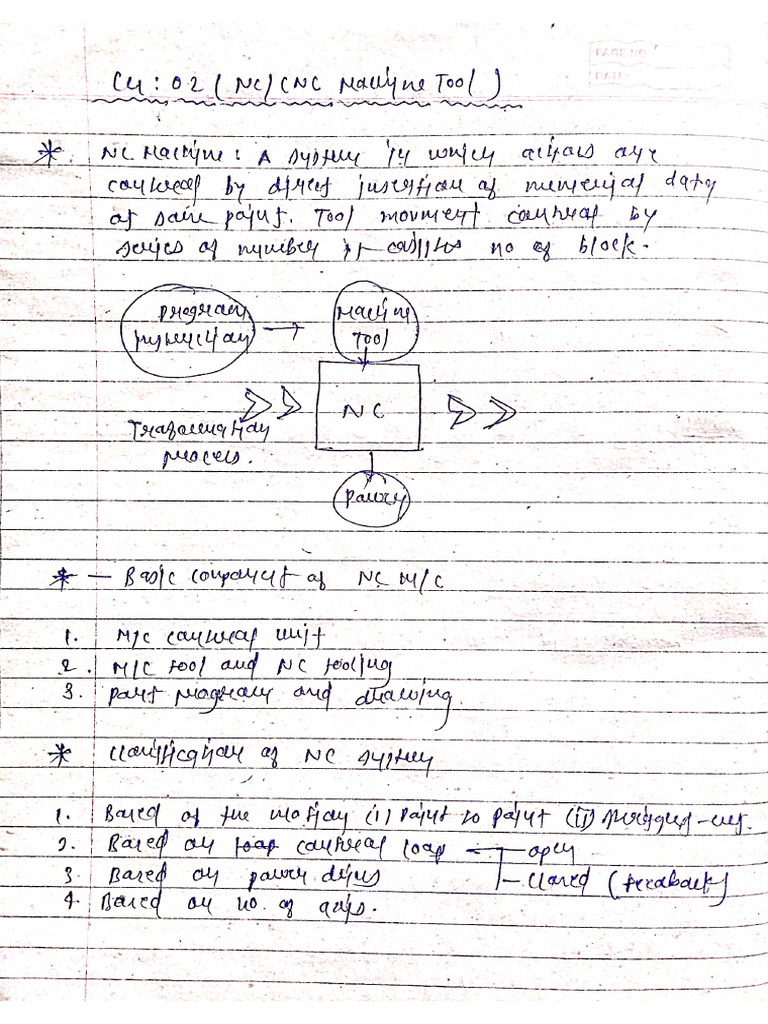 CH: 02 (NC/CNC Machine Tool)
PAGE NO.
DATE
* NC Machine: A system in which actions are
control by direct insertion of numerical data
at some point. Tool movment control by
series of number it call no of block.
Program
instruction → Machine
Tool
NC
Transformation
process.
Power
* — Basic component of NC M/C
1. M/C control unit
2. M/C tool and NC tooling
3. part program and drawing
* Classification of NC system
1. Based of the motion (i) Point to point (ii) straight-cut.
2. Based on loop control loop open
3. Based on power drives closed (feedback)
4. Based on no. of axis.